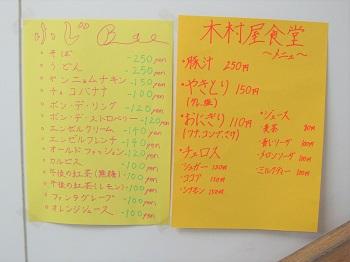 そば -250yen
うどん -250yen
ヤンニョムチキン -150yen
チョコバナナ -100yen
ポン・デ・リング -120yen
ポン・デ・ストロベリー -120yen
エンゼルクリーム -140yen
エンゼルフレンチ -140yen
オールドファッション -120yen
カルピス -100yen
午後の紅茶(無糖) -100yen
午後の紅茶(レモン) -100yen
ファンタグレープ -100yen
オレンジジュース -100yen
木村屋食堂
〜メニュー〜
・豚汁 250円
・やきとり 150円
(タレ、塩)
・おにぎり 110円
(ツナ、コンブ、さけ)
・チュロス
シュガー
ココア
シナモン
・ジュース
麦茶
メロンソーダ
ミルクティー